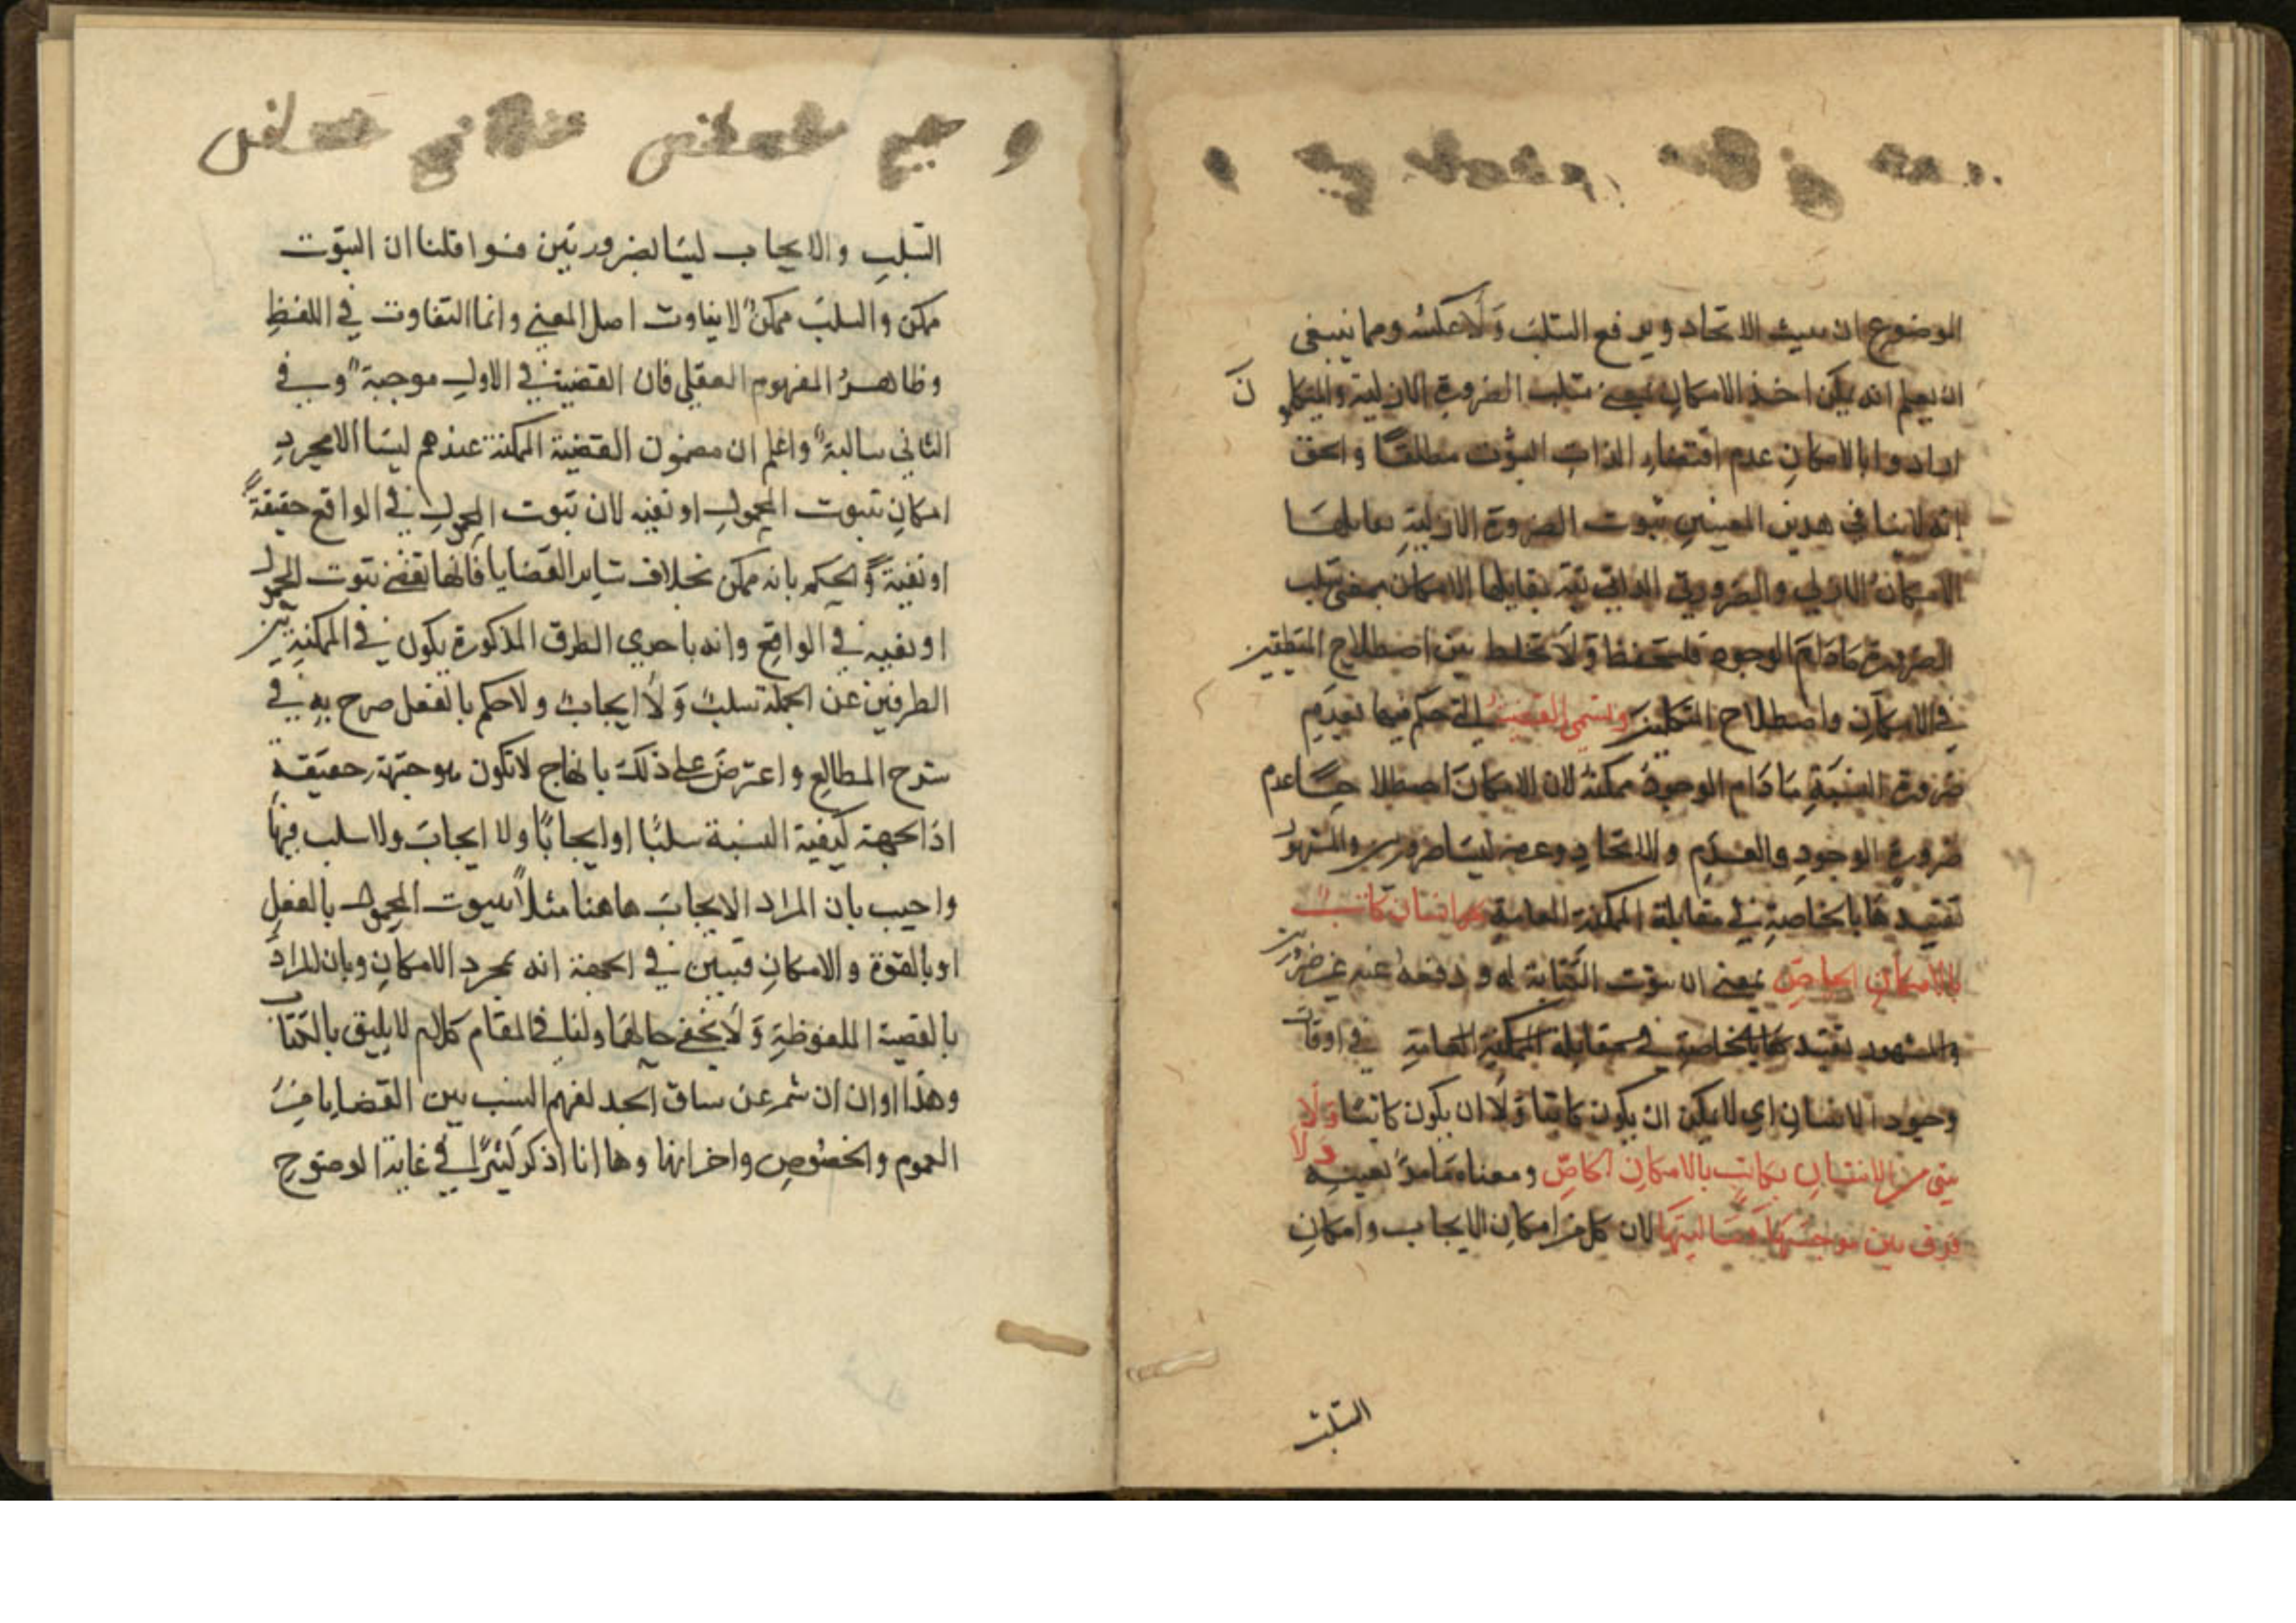 الموضوع ان يثبت الاتحاد و يرفع السلب وَلَا عكسُه ومما ينبغى
ان يعلم انه يمكن اخذ الامكانِ بمعنى سلب الضرورةِ الازلية والمتكلمو
نَ
ارادوا بالامكانِ عدم اقتضاءِ الذاتِ الثبوت مطلقًا والحق
انه لا ينافى هذين المعنيينِ ثبوت الضرورة الازليةِ يقابلهَا
الامكانُ الازلى والضرورة الذاتية يقابلها الامكان بمعنى سلب
الضرورة مَادَامَ الوجود فلتحفظ وَلَا تخلط بين اصطلاحِ المنطقيين
فى الامكانِ واصطلاح المتكلمين وتسمى القضيةُ التى حكم فيها بعدمِ
ضرورة النسبَةِ مَا دَام الوجودُ ممكنةً لان الامكانَ اصطلاحًا عدم
ضرورةِ الوجودِ والعدَمِ والاتحادِ وعدمه ليسَا ضرورى والمشهور
تقييدهَا بالخاصةِ فى مقابلة الممكنة العامةِ كل انسان كاتبٌ
بالامكانِ الخاصِّ بمعنى ان ثبوت الكتابة له و رفعهُ عنه غير ضرورىٍ
والمشهور تقييدهَا بالخاصةِ فى مقابلة الممكنة العامةِ فى اوقات
وجود الانسانِ اى لا يمكن ان يكون كاتبًا وَلَا ان يكون كاتبًا وَلَا
وَلَا
شىَ من الانسانِ بكاتبٍ بالامكانِ الخاصِّ ومعناه مَا مرّ بعينه
فرق بين موجبتهَا وَسَالبتهَا لان كل من امكانِ الايجاب وامكانِ
السَّلب
السَّلبِ والايجاب ليسَا بضروريَتين فسوا قلنا ان الثبوت
ممكن والسلبَ ممكنٌ لا يتفاوت اصل المعنى وانما التفاوت فى اللفظِ
وظاهرُ المفهوم العقلى فان القضيةَ فى الاولِ موجبة وَ فى
الثانى سالبة واعلم ان مضمون القضية الممكنة عندهم ليسَ الا مجردِ
امكانِ ثبوت المحمولِ او نفيه لان ثبوت المحمولِ فى الواقع حقيقةً
او نفيهً والحكم بانه ممكن بخلاف سَاير القضايا فانها تقتضى ثبوت المحمول
او نفيه فى الواقعِ وانه باحدى الطرق المذكورة يكون فى الممكنةِ بين
الطرفين عن الجملة سلبٌ وَلَا ايجابٌ ولا حكم بالفعل صرح بهِ فى
شرح المطالعِ واعترضَ على ذلكَ بانهاج لا تكون موجهة حقيقةً
اذ الجهة كيفية النسبة سلبًا او ايجابًا ولا ايجابَ ولا سلب فيهَا
واجيب بان المراد الايجابَ هاهنا مثلاً ثبوت المحمول بالفعلِ
او بالقوة والامكانِ فبين فى الجهة انه بمجرد الامكانِ وبان المرادَ
بالقضية الملفوظةِ وَلَا يخفى حالهَا ولنا فى المقام كلام لا يليق بالكتاب
وهذا اوان ان شمر عن ساق الجد لفهم النسَب بين القضايا منَ
العموم والخصُوصِ واخراتها وها انا اذكر كثيرًا فى غاية الوضوحِ